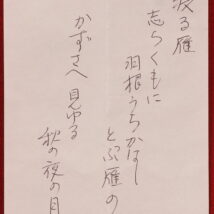 渡る雁
志らくもに
羽根うちかはし
とぶ雁の
かずさへ見ゆる
秋の夜の月